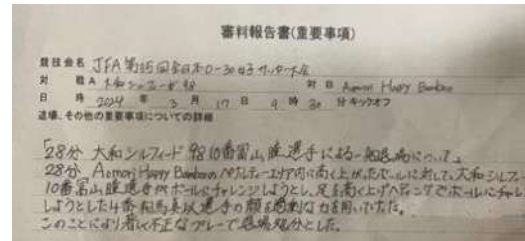 審判報告書(重要事項)
競技会名 JFA 第35回全日本O-30女子サッカー大会
対戦A 大和シルフィード98 対B Aomori Happy Bamboo
日時 2024年3月17日9時30分キックオフ
退場、その他の重要事項についての詳細
「28分 大和シルフィード98 10番冨山瞳選手による一発退場について」
28分 Aomori Happy Bambooのペナルティーエリア内に高く上がったボールに対して、大和シルフィー
10番冨山瞳選手がボールにチャレンジしようとし、足を高く上げヘディングでボールにチャレ
しようとした4番 選手の顔を過剰な力を用いて
このことにより著しく不正なプレーで退場処分とした。